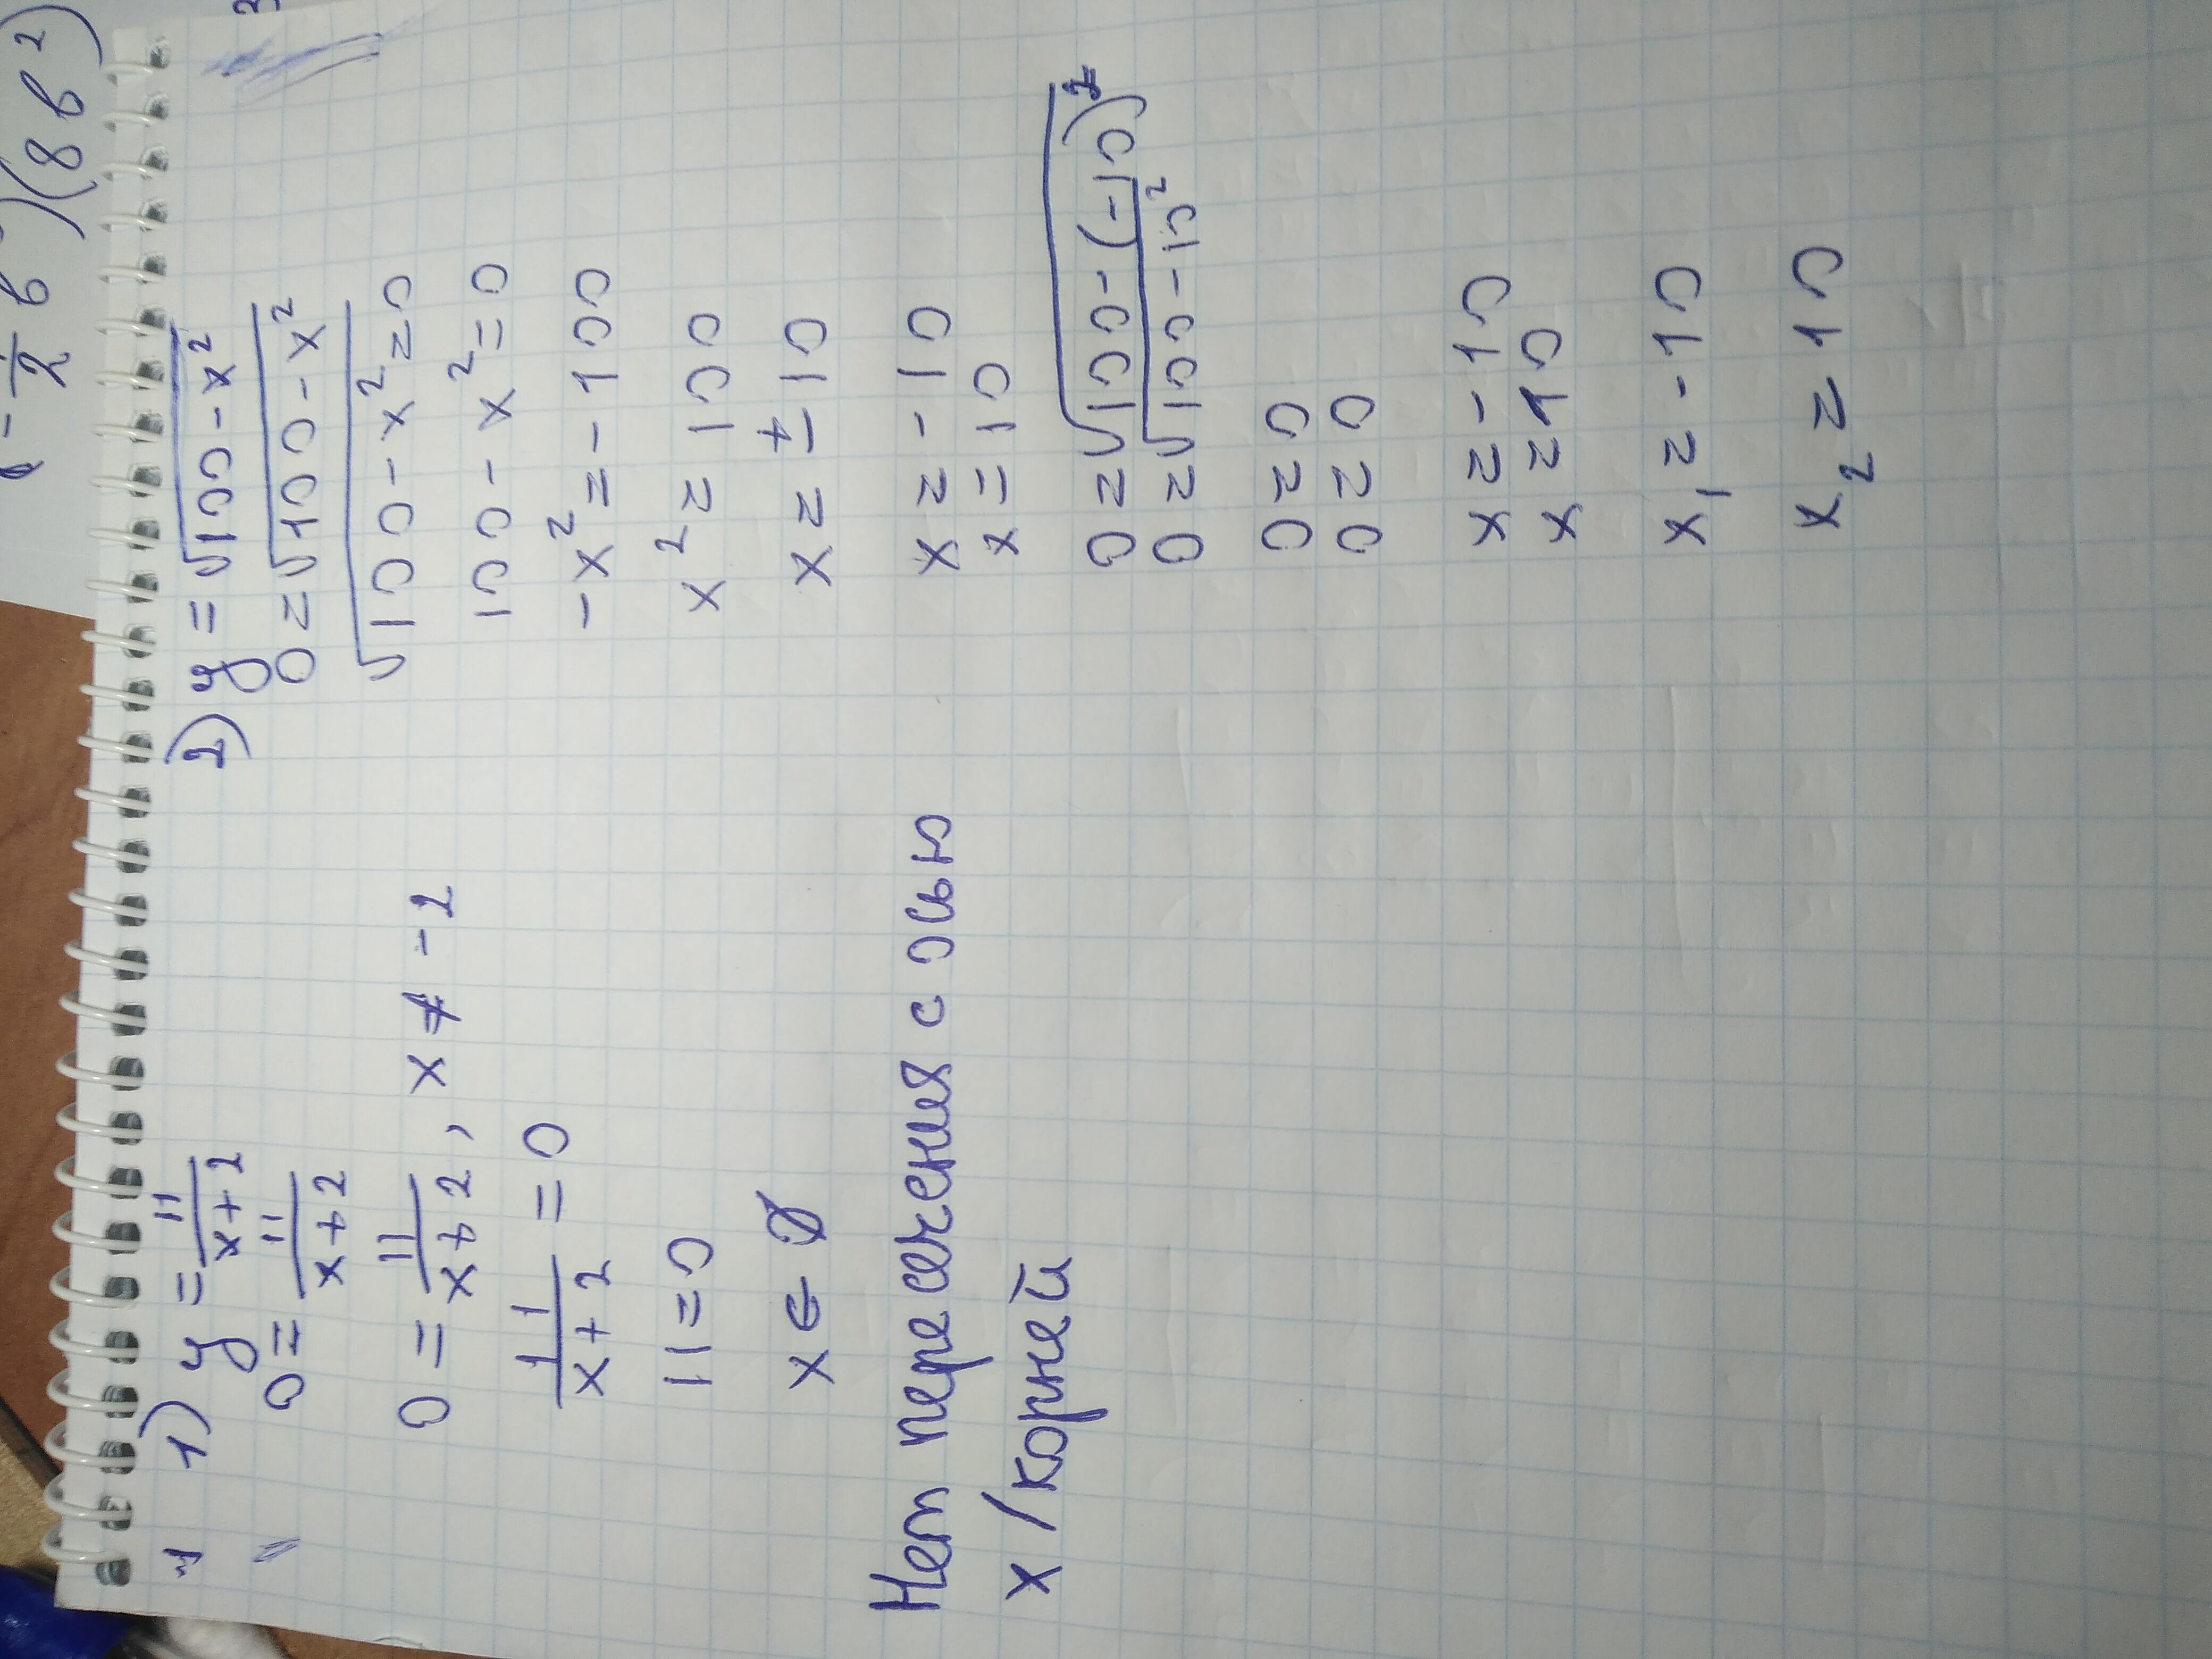 1 1) y = 11/(x+2)
0 = 11/(x+2)
0 = 11/(x+2), x ≠ -2
11/(x+2) = 0
11=0
x ∈ ∅
Нет пересечения с осью
x / корней
2) y = √(100-x²)
0=√(100-x²)
√(100-x²)=0
100-x²=0
-x²=-100
x²=100
x=±10
x=-10
x=10
0=√(100-(-10)²)
0=√(100-10²)
0=0
0=0
x=-10
x=10
x₁=-10
x₂=10